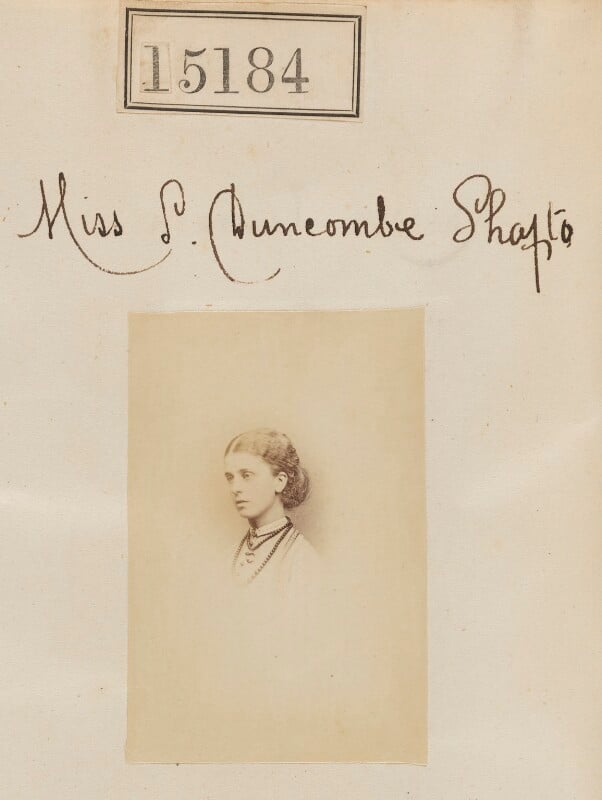 15184
Miss S. Duncombe Shafto